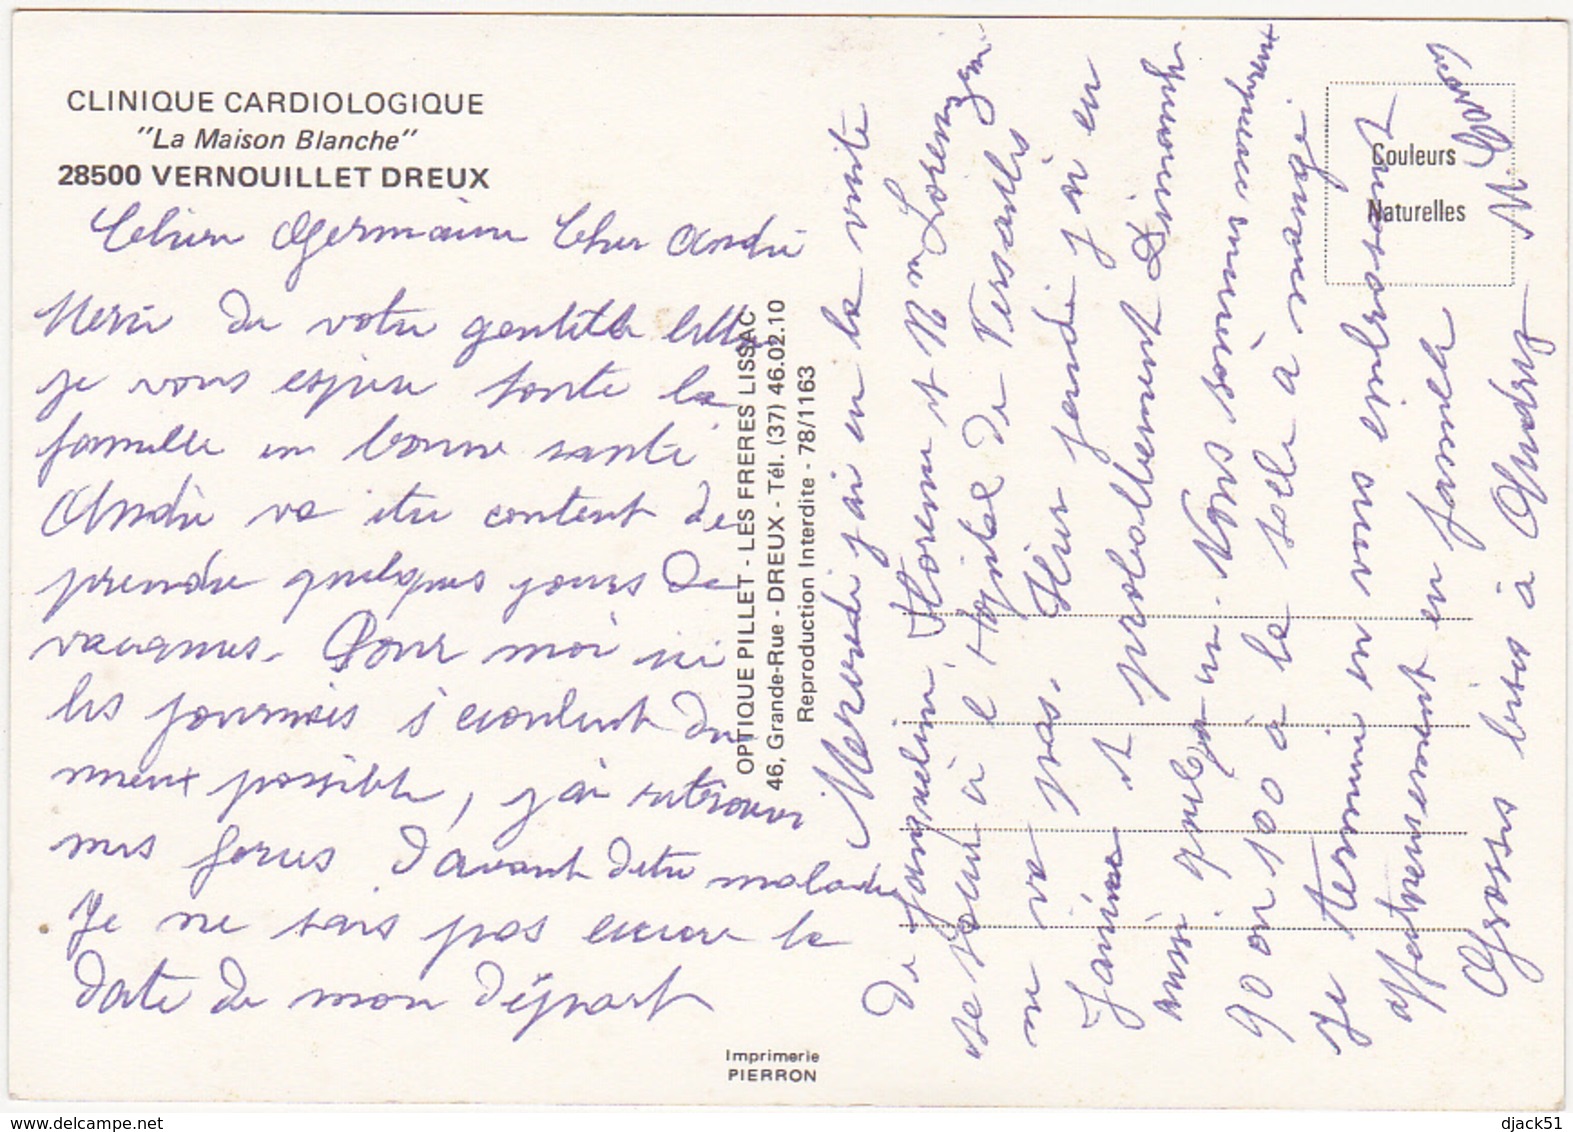 CLINIQUE CARDIOLOGIQUE
"La Maison Blanche"
28500 VERNOUILLET DREUX
Chere Germaine Cher André
Merci de votre gentille lettre
je vous espere toute la
famille en bonne santé
André va etre content de
prendre quelques jours de
vacances. Pour moi ici
les journées s'ecoulent du
mieux possible, j'ai retrouver
mes forces d'avant detre malade
Je ne sais pas encore la
date de mon départ
OPTIQUE PILLET - LES FRERES LISSAC
46, Grande-Rue - DREUX - Tél. (37) 46.02.10
Reproduction Interdite - 78/1163
Imprimerie
PIERRON
Mercredi j'ai eu la visite
de Jacqueline. Florence et Mr Lorenzini
se soeur à l'Hopital de Versailles
ne va pas. Hier jeudi j'ai eu
Janine et probablement Dimanche
aussi quelqu'un. Nous sommes
90 ou 100 à la salle à manger
Je termine en vous embrassant
affectueusement en famille
Grosses bises à
Couleurs
Naturelles
delcampe.net
djack51